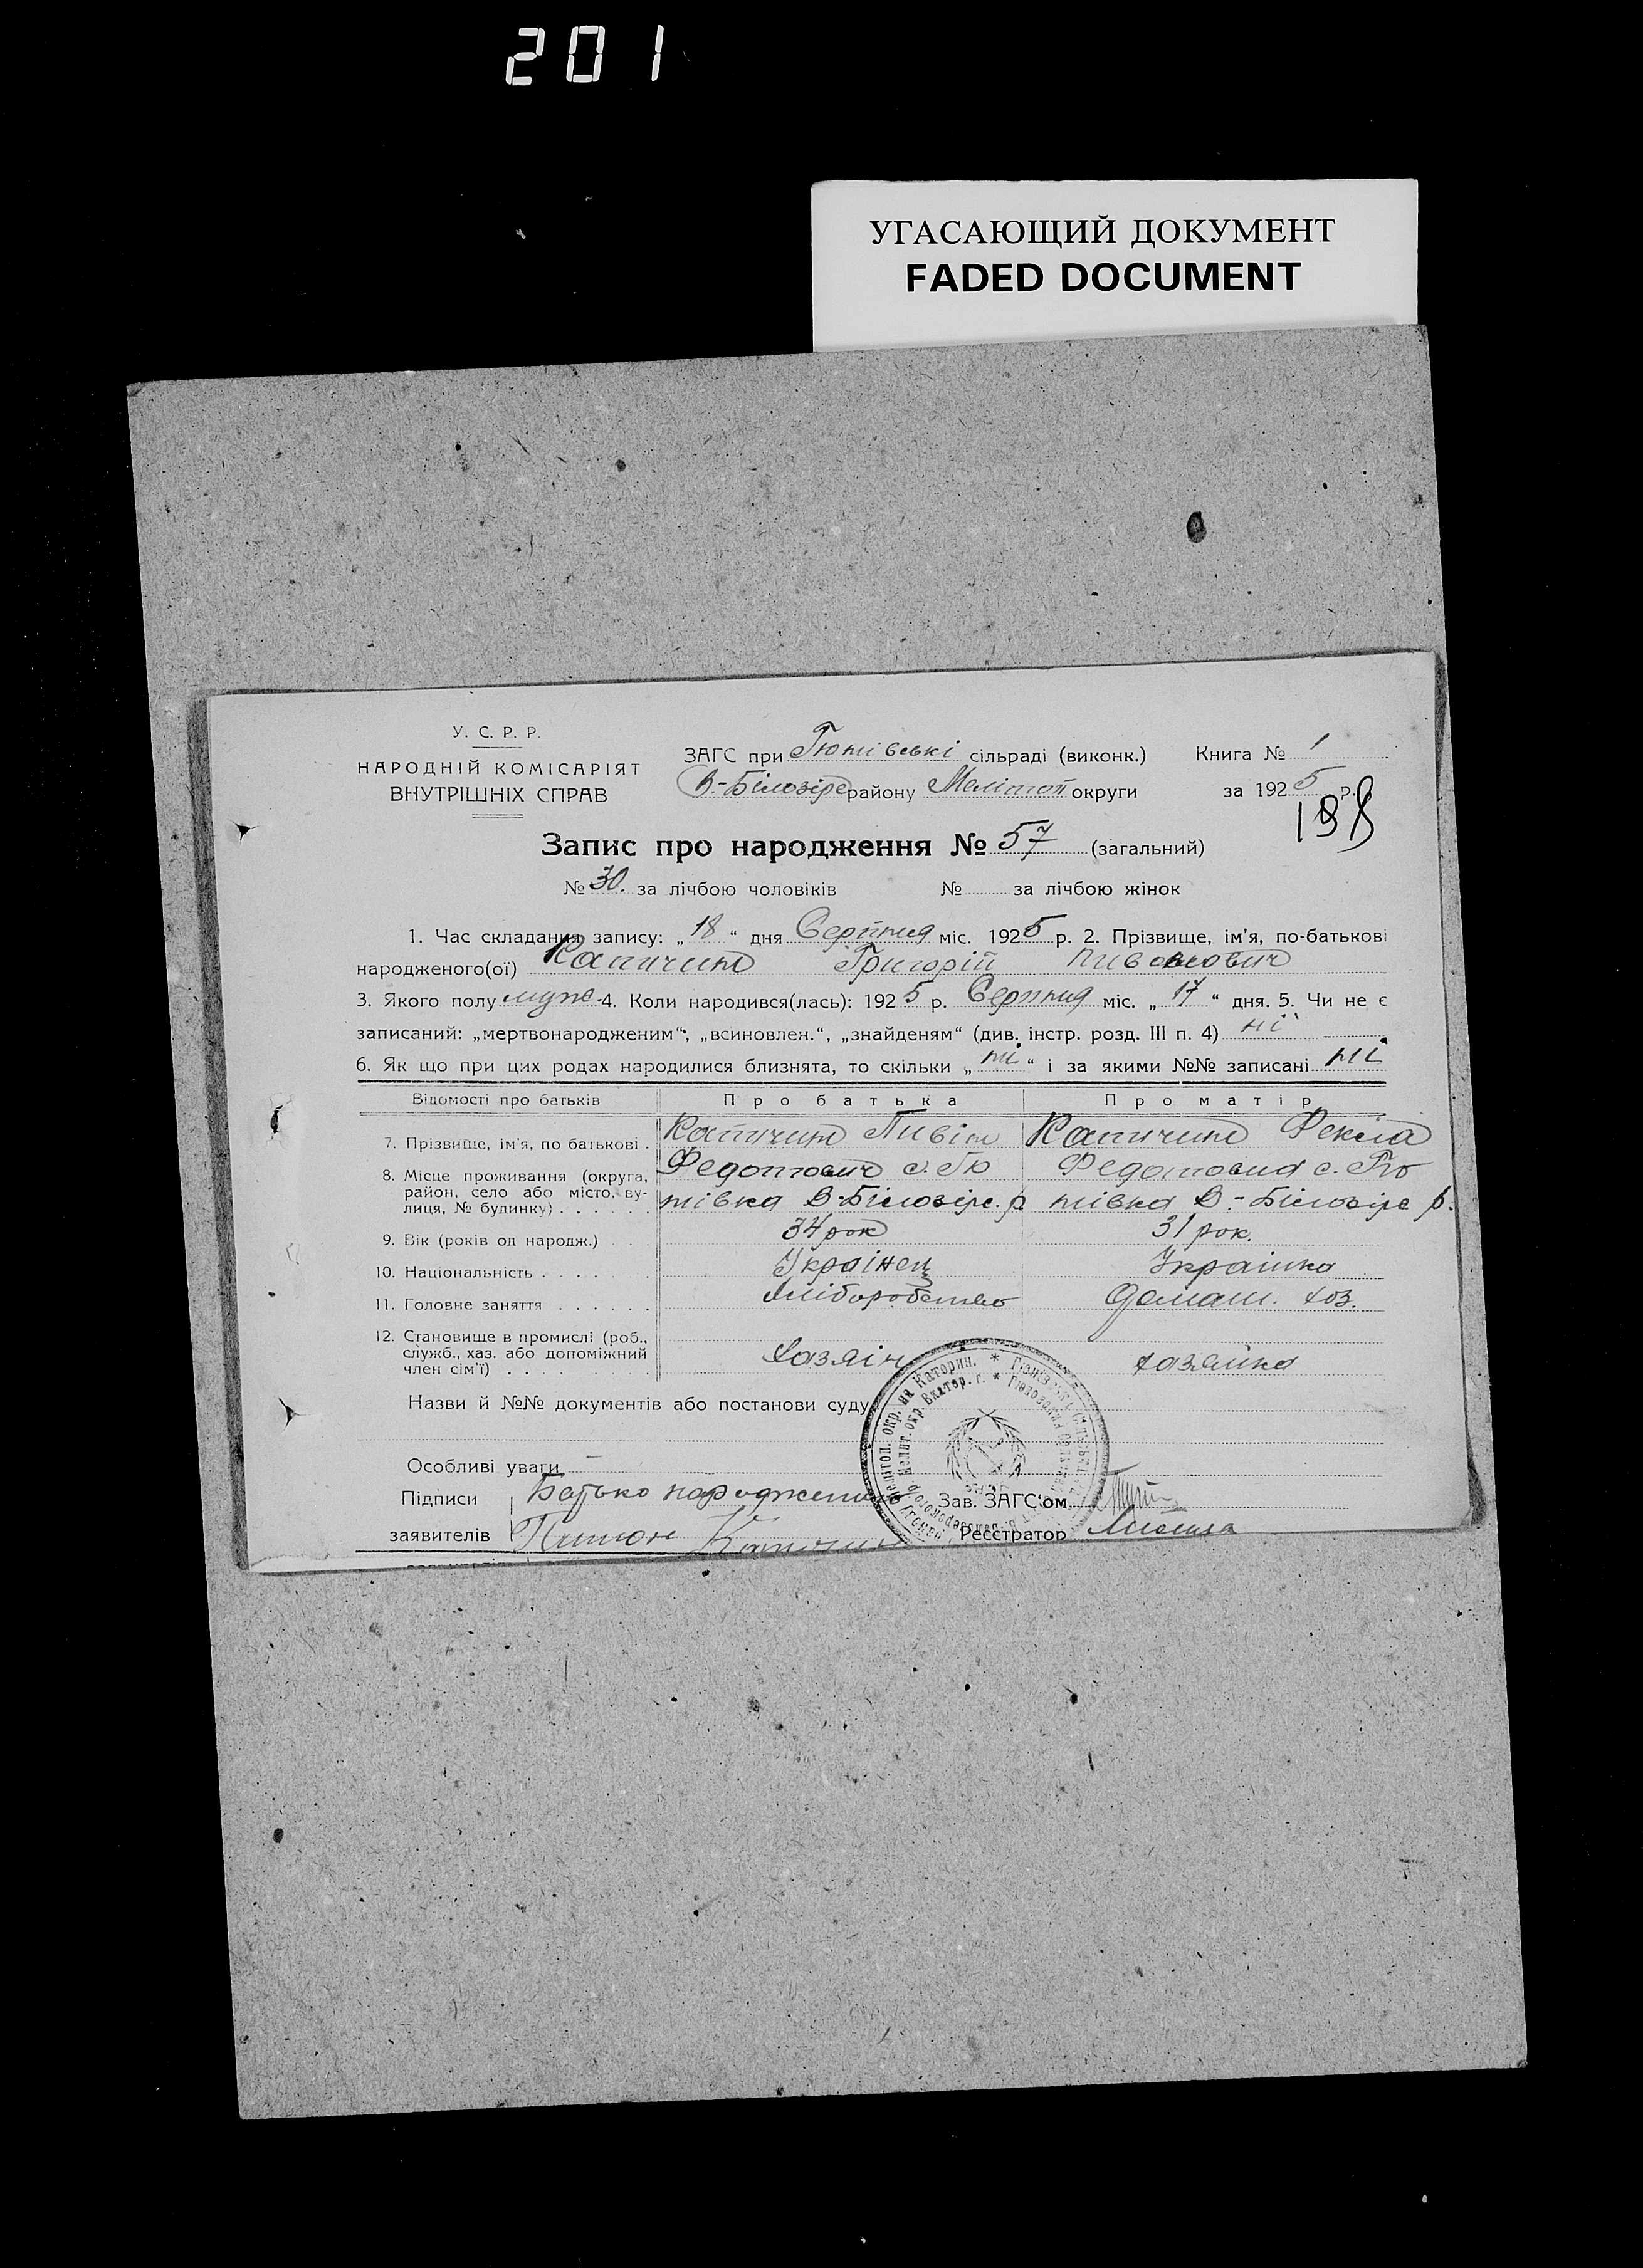 201
УГАСАЮЩИЙ ДОКУМЕНТ
FADED DOCUMENT
У. С. Р. Р.
НАРОДНІЙ КОМІСАРІЯТ
ВНУТРІШНІХ СПРАВ
ЗАГС при Гюнівські сільраді (виконк.) Книга № 1
В.-Білозірс району Мелітоп округи за 1925 р.
198
Запис про народження № 57 (загальний)
№ 30. за лічбою чоловіків № за лічбою жінок
1. Час складання запису: „18“ дня Серпня міс. 1925 р. 2. Прізвище, ім'я, по-батькові
народженого(ої) Капичин Григорій
3. Якого полу муж. 4. Коли народився(лась): 1925 р. Серпня міс. „17“ дня. 5. Чи не є
записаний: „мертвонародженим“, „всиновлен.“, „знайденям“ (див. інстр. розд. III п. 4) ні
6. Як що при цих родах народилися близнята, то скільки „ні“ і за якими №№ записані ні
Відомості про батьків Про батька Про матір
7. Прізвище, ім'я, по батькові . Капичин Капичин Фекла
Федотович с. Гю Федотовна с. Гю
8. Місце проживання (округа,
район, село або місто, ву-
лиця, № будинку) . . . . . . нівка В-Білозірс. р нівка В.-Білозірс р.
9. Вік (років од народж.) . . 34 рок 31 рок.
10. Національність . . . . . . Українец Українка
11. Головне заняття . . . . . . Хліборобство Домаш. хоз.
12. Становище в промислі (роб.,
служб., хаз. або допоміжний
член сім'ї) . . . . . . . . . Хазяін хазяйка
Назви й №№ документів або постанови суду
Особливі уваги
Підписи Батько народженого Зав. ЗАГС'ом
заявителів Реєстратор